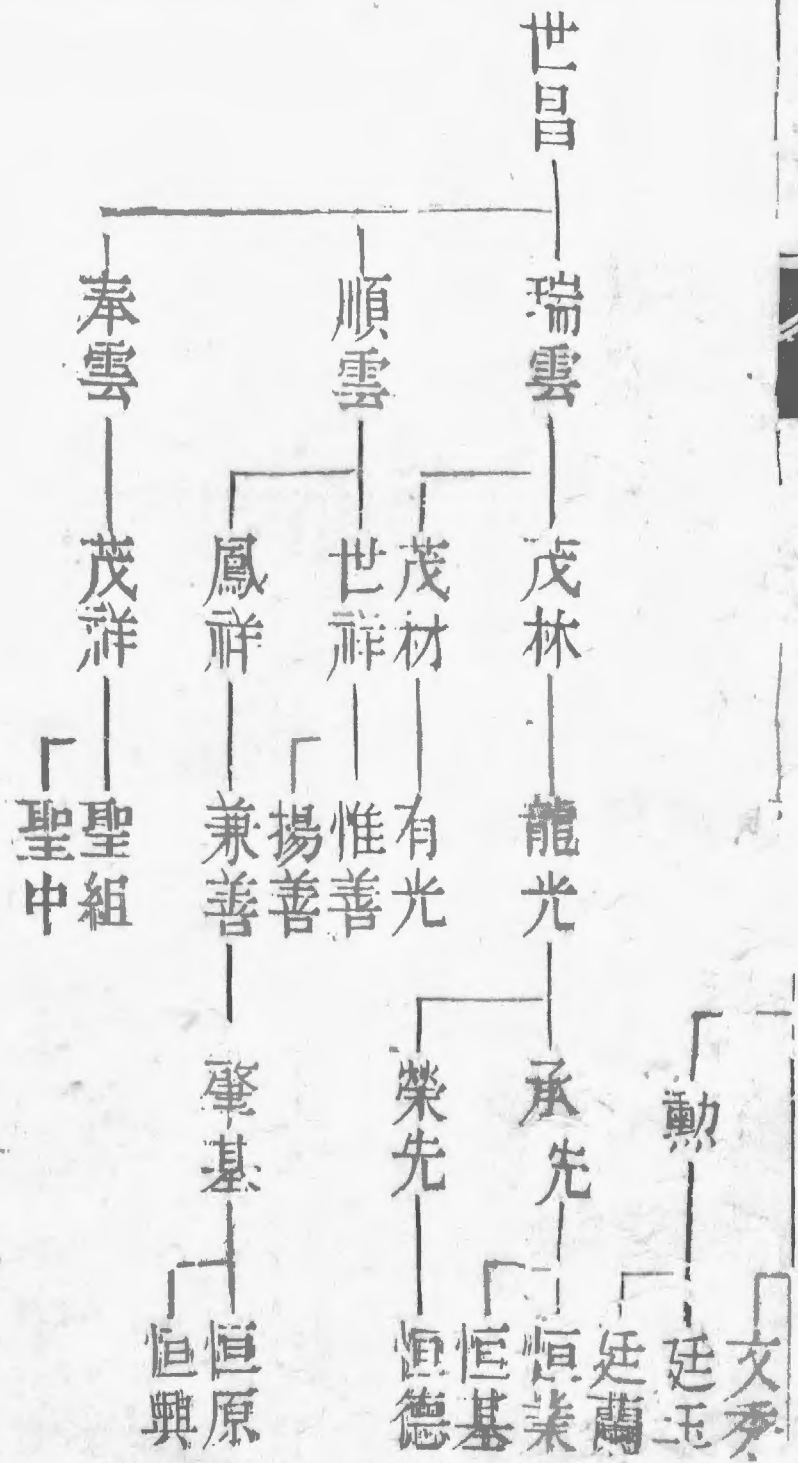 世昌
瑞雲
順雲
奉雲
茂林
茂材
世祥
鳳祥
茂祥
龍光
有光
惟善
揚善
兼善
聖組
聖中
勳
承先
榮先
肇基
文秀
廷玉
廷蘭
恒業
恒基
恒德
恒原
恒興